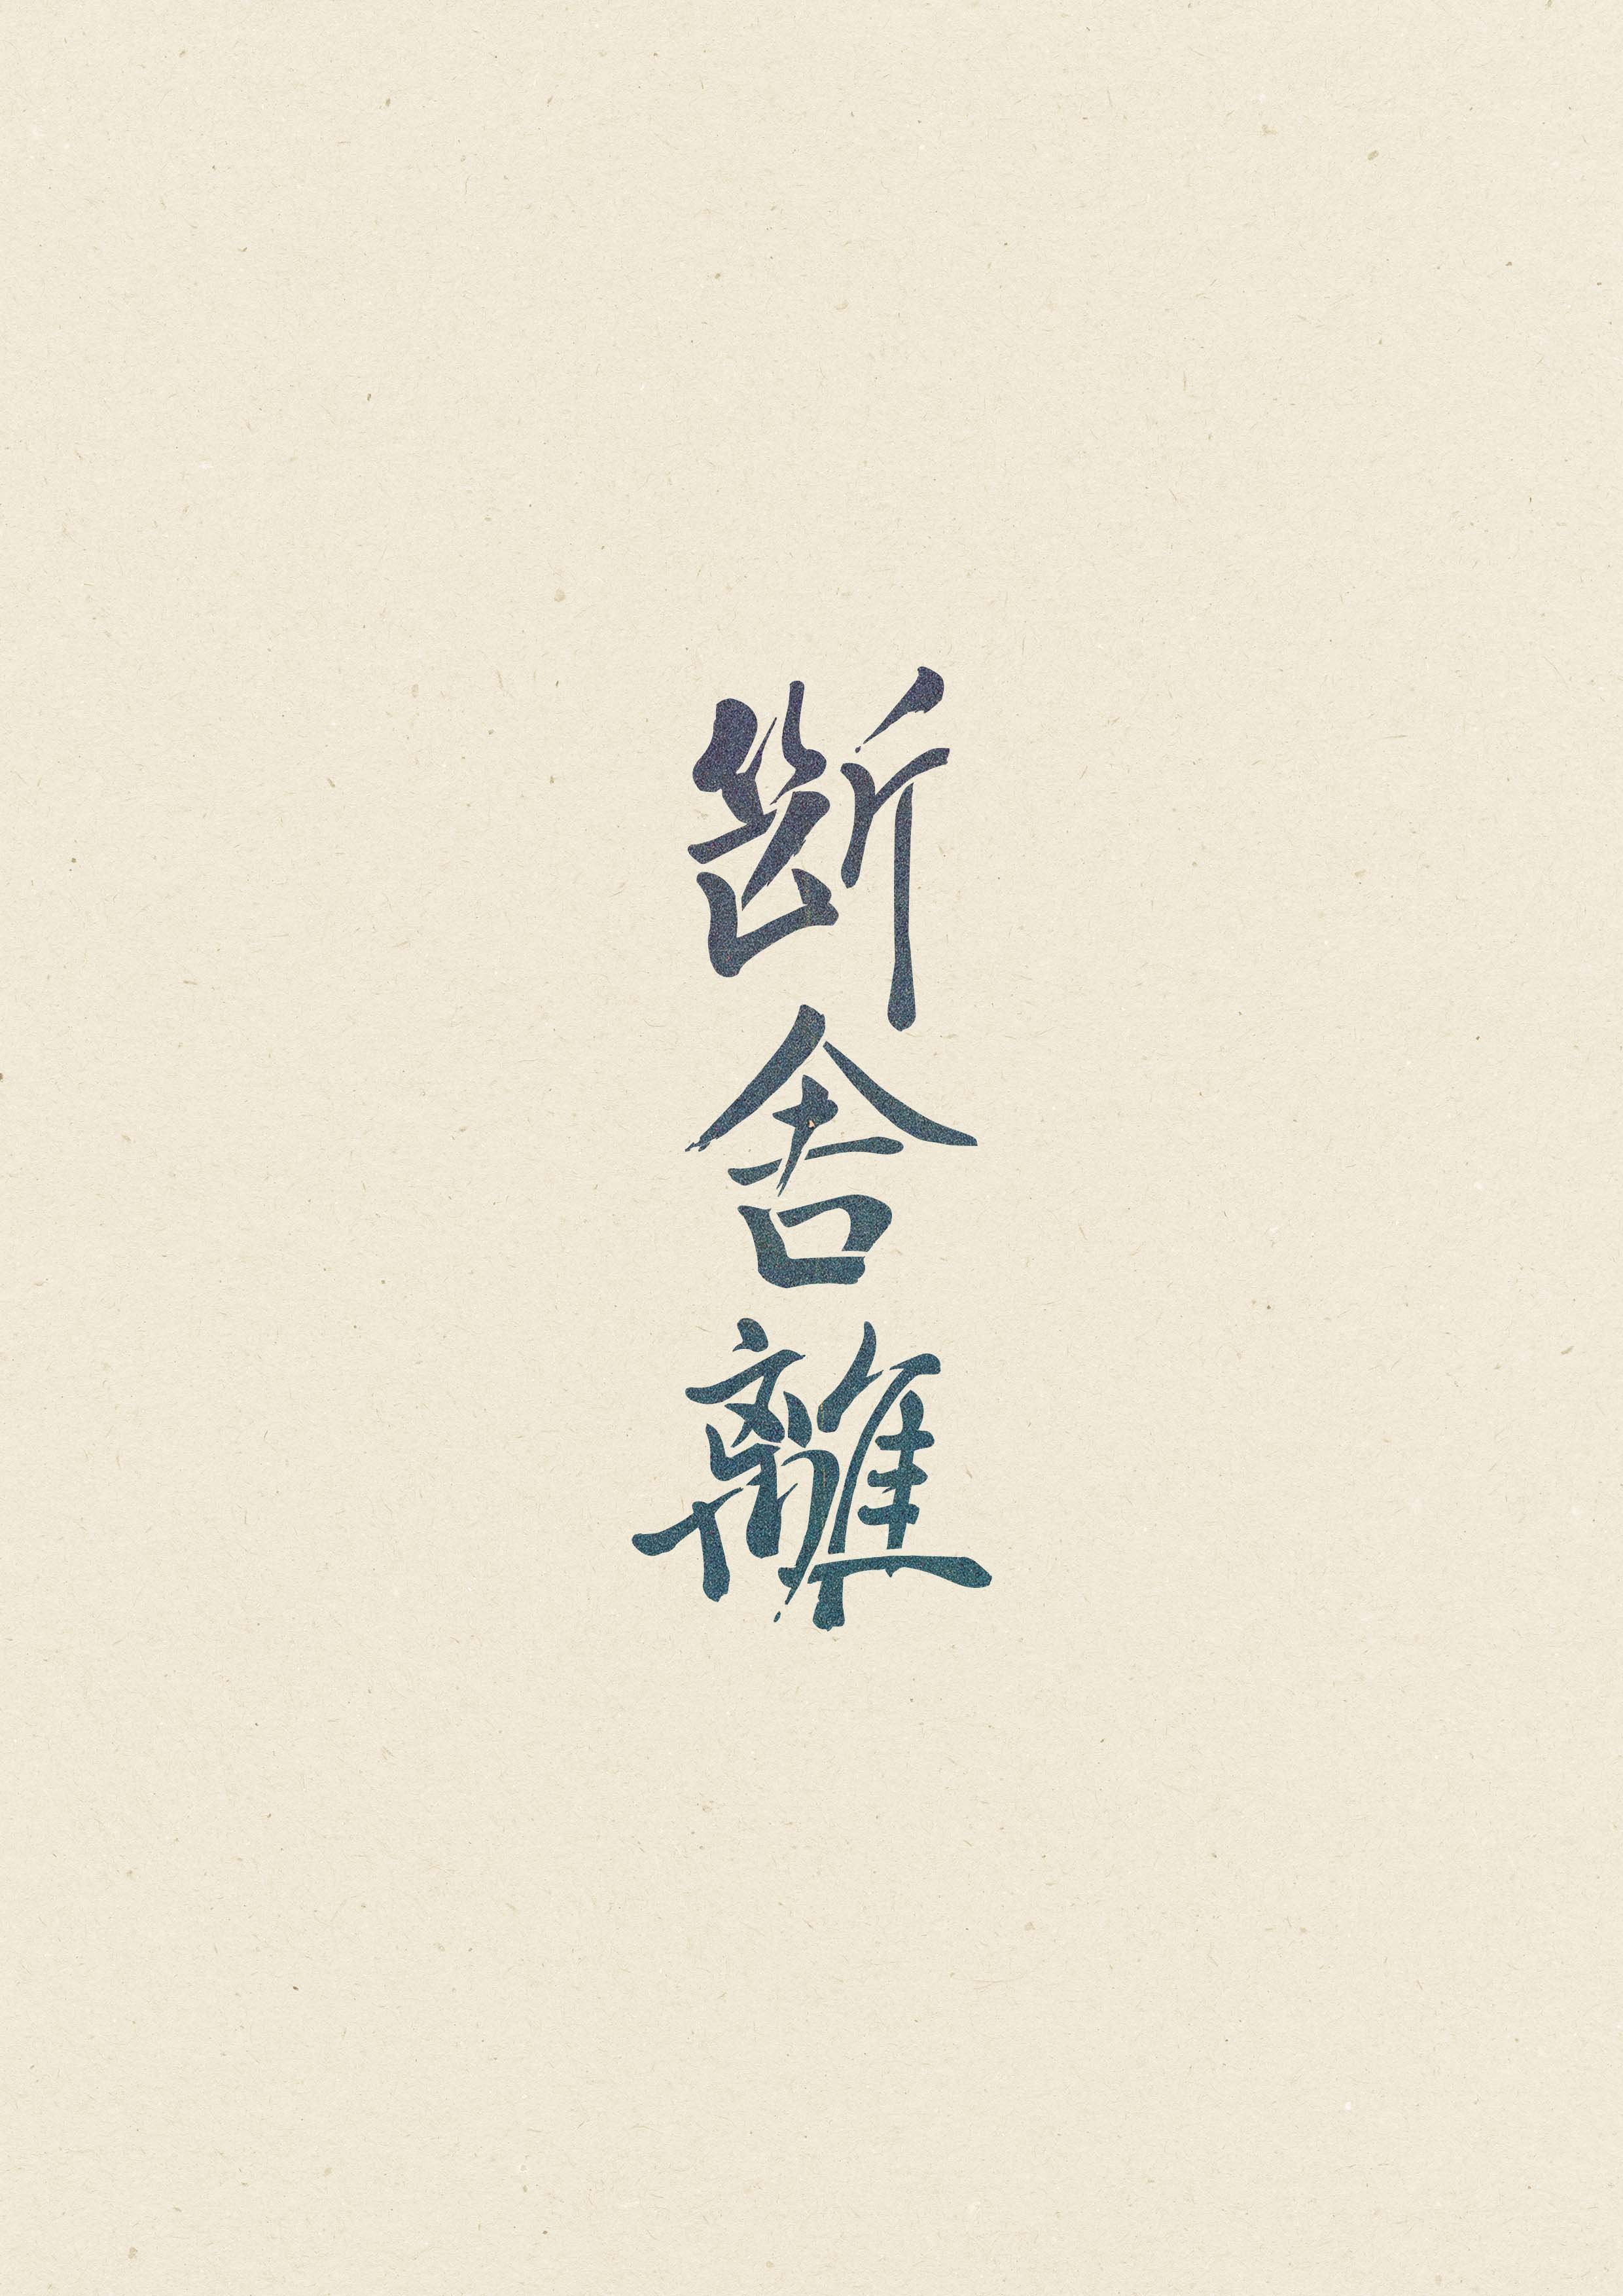 断舍離